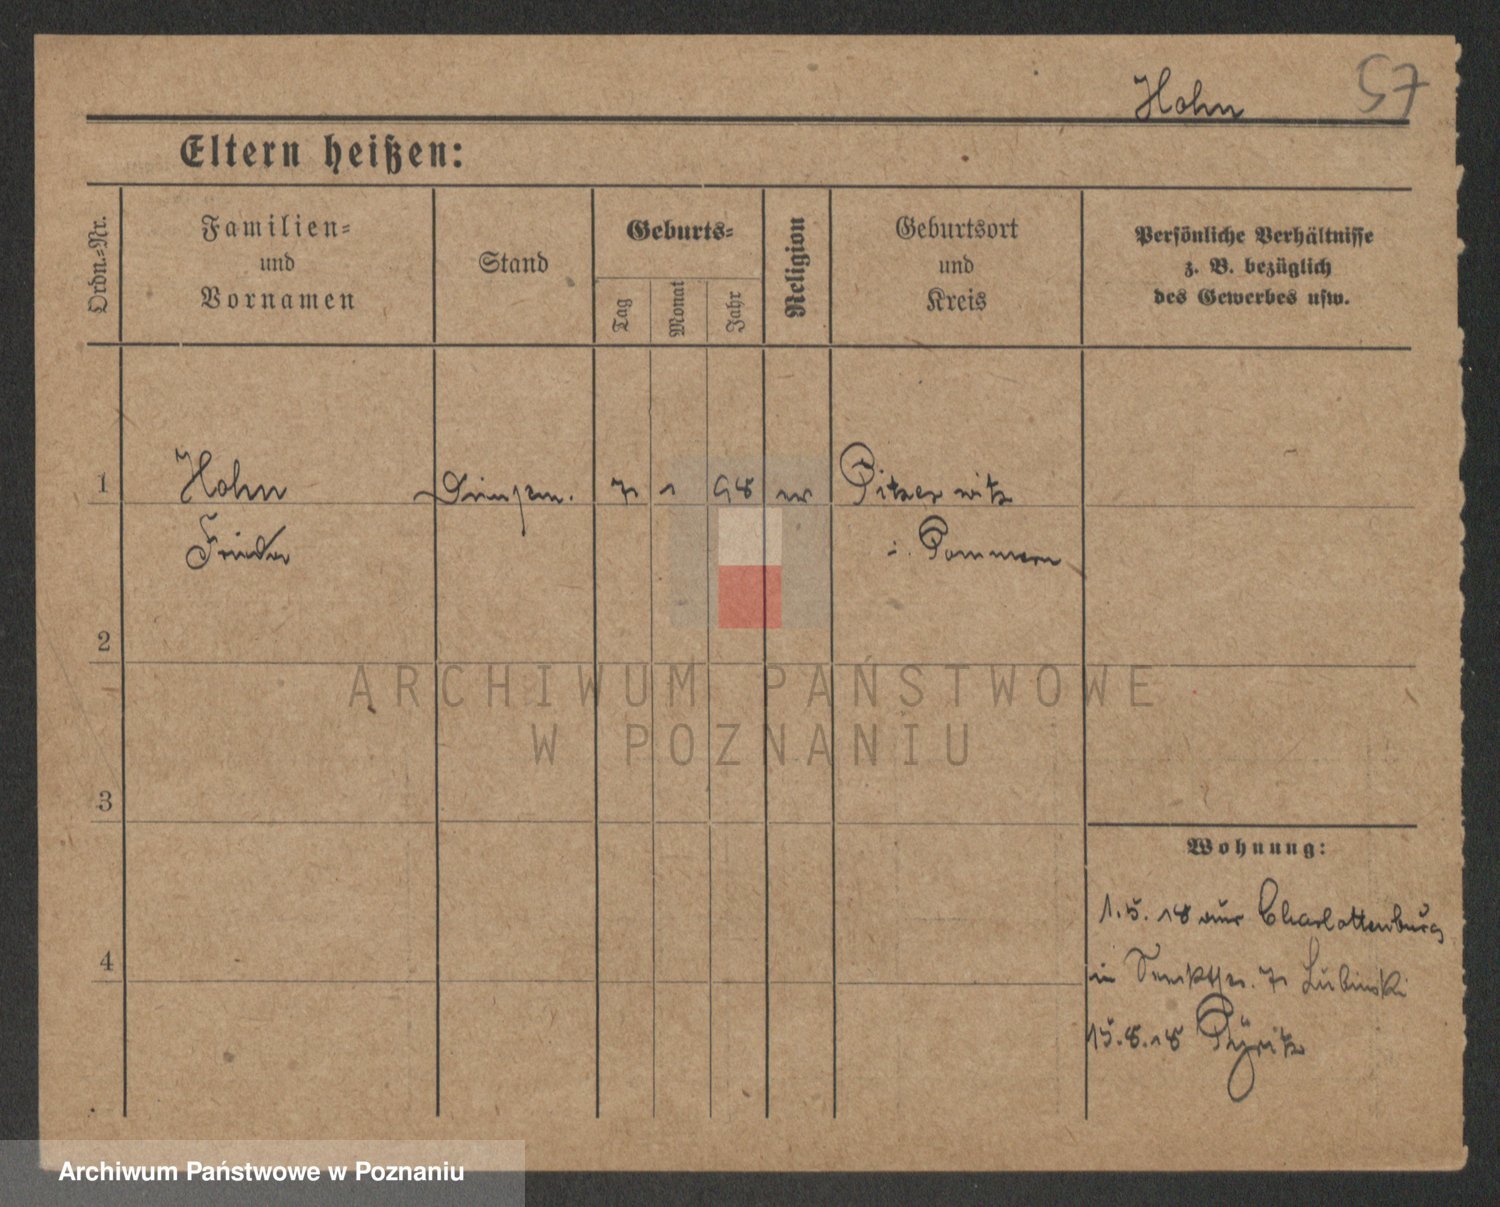 Hohn 57
Eltern heißen:
Ordn.-Nr.
Familien-
und
Vornamen
Stand
Geburts-
Tag
Monat
Jahr
Religion
Geburtsort
und
Kreis
Persönliche Verhältnisse
z. B. bezüglich
des Gewerbes usw.
1
Hohn
7 1 98
i. Pommern
2
3
4
Wohnung:
1.5.18 aus Charlottenburg
in 7 Lubinski
15.8.18 Pyritz
ARCHIWUM PAŃSTWOWE
W POZNANIU
Archiwum Państwowe w Poznaniu